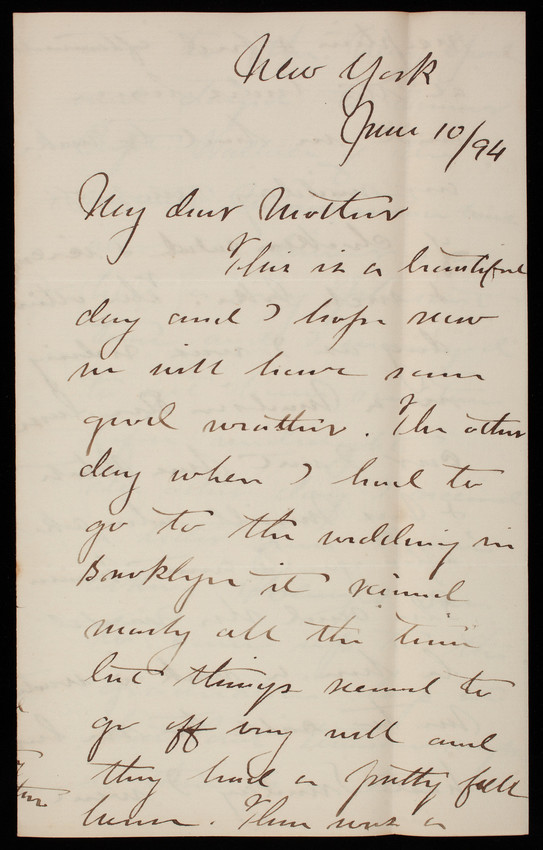 New York
June 10/94
My dear Mother
This is a beautiful
day and I hope now
we will have some
good weather. The other
day when I had to
go to the wedding in
Brooklyn it rained
nearly all the time
but things seemed to
go off very well and
they had a pretty full
house. There was a